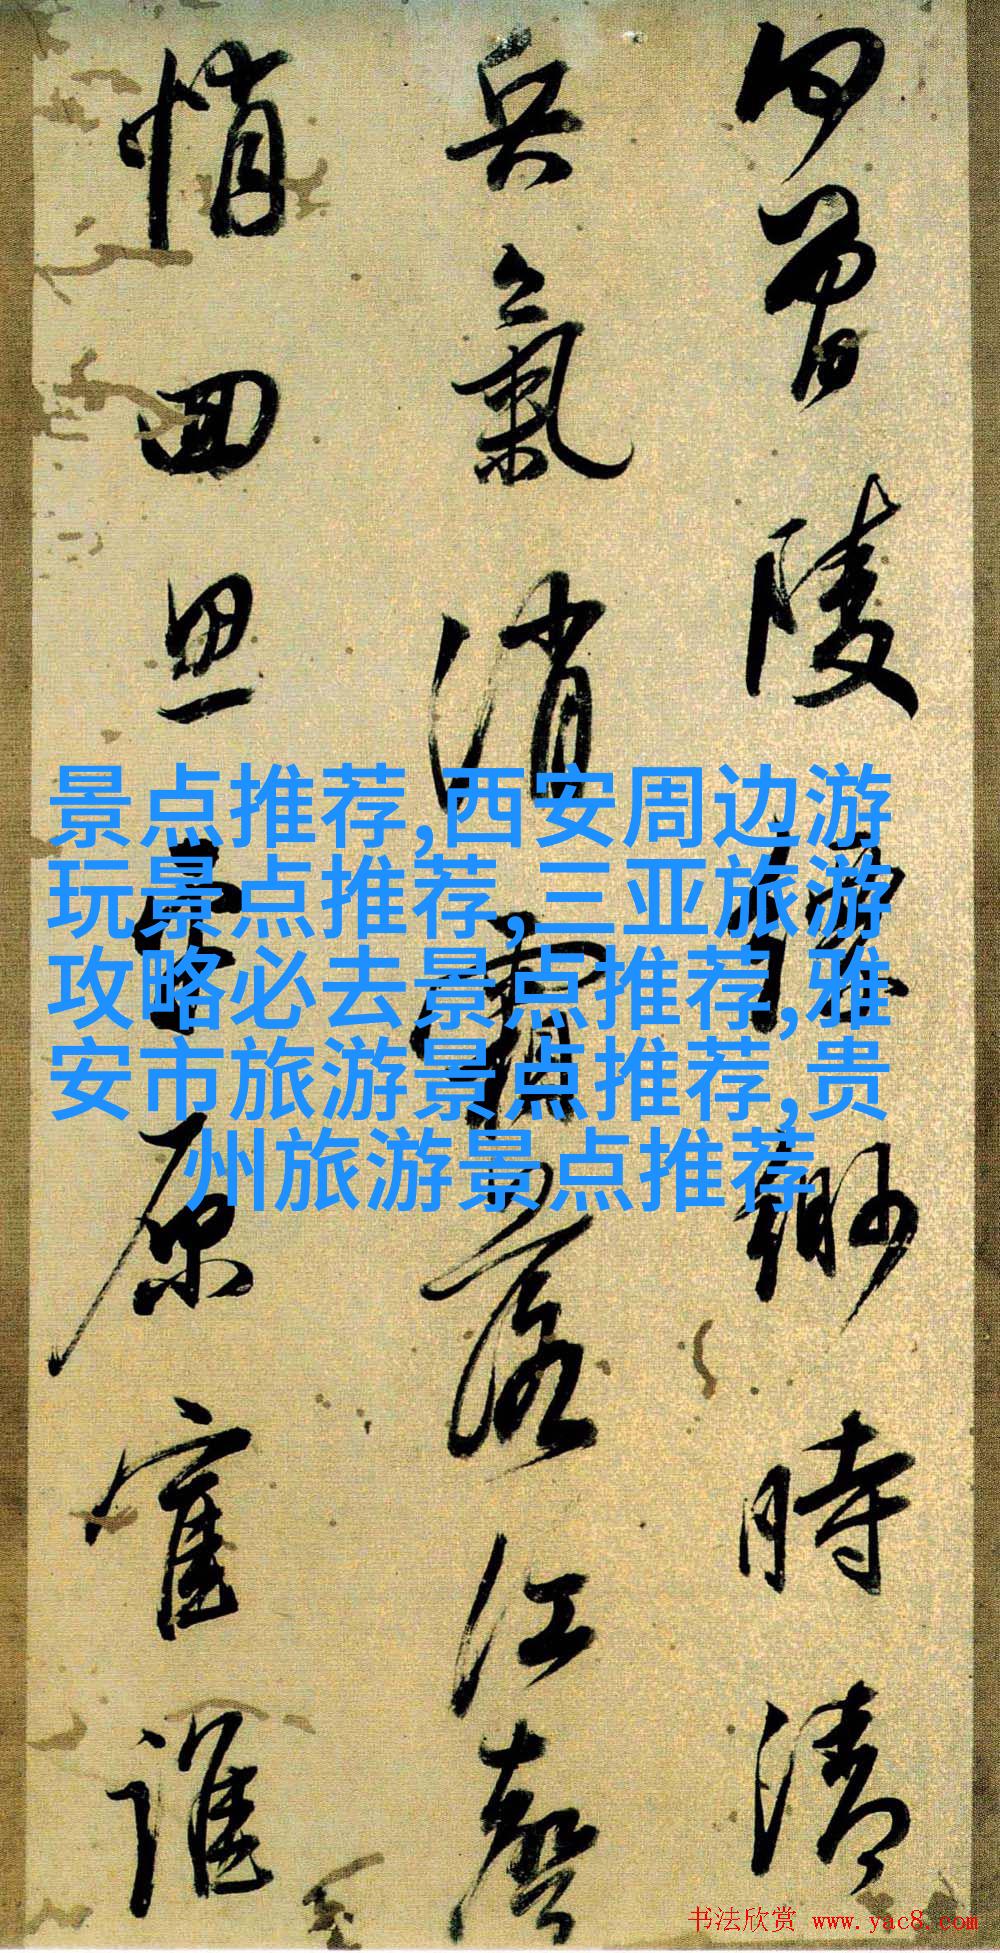 景点推荐,西安周边游
玩景点推荐,三亚旅游
攻略必去景点推荐,雅
安市旅游景点推荐,贵
州旅游景点推荐
曾陵時清
兵氣消落江聲
悄回原誰
书法欣赏 www.yac8.com